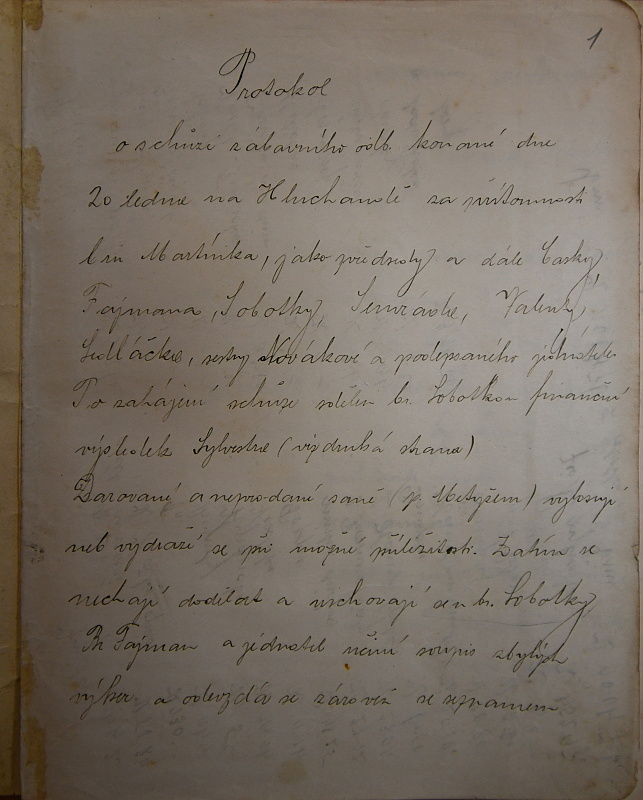 1
Protokol
o schůzi zábavního odb. konané dne
20 ledna na Hluchandě za přítomnosti
brů Martínka, jako předsedy a dále Časky,
Fajmana, Sobotky, Semráda, Valenty,
Sedláčka, sestry Novákové a podepsaného jednatele.
Po zahájení schůze sdělen br. Sobotkou finanční
výsledek Sylvestra (viz druhá strana)
Darované a neprodané saně (p. Metyšem) vylosují
neb vydraží se při možné příležitosti. Zatím se
nechají dodělat a uschovají se u br. Sobotky.
Br Fajman a jednatel učiní soupis zbylých
výher a odevzdá se zároveň se seznamem